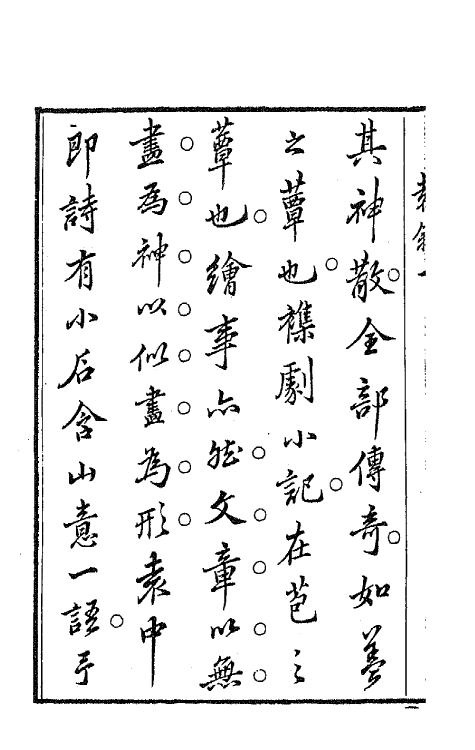 其神散全部傳奇如養
之蕈也襍劇小記在苞之
蕈也繪事亦然文章以無
畫為神以似畫為形袁中
郎詩有小石含山意一語予